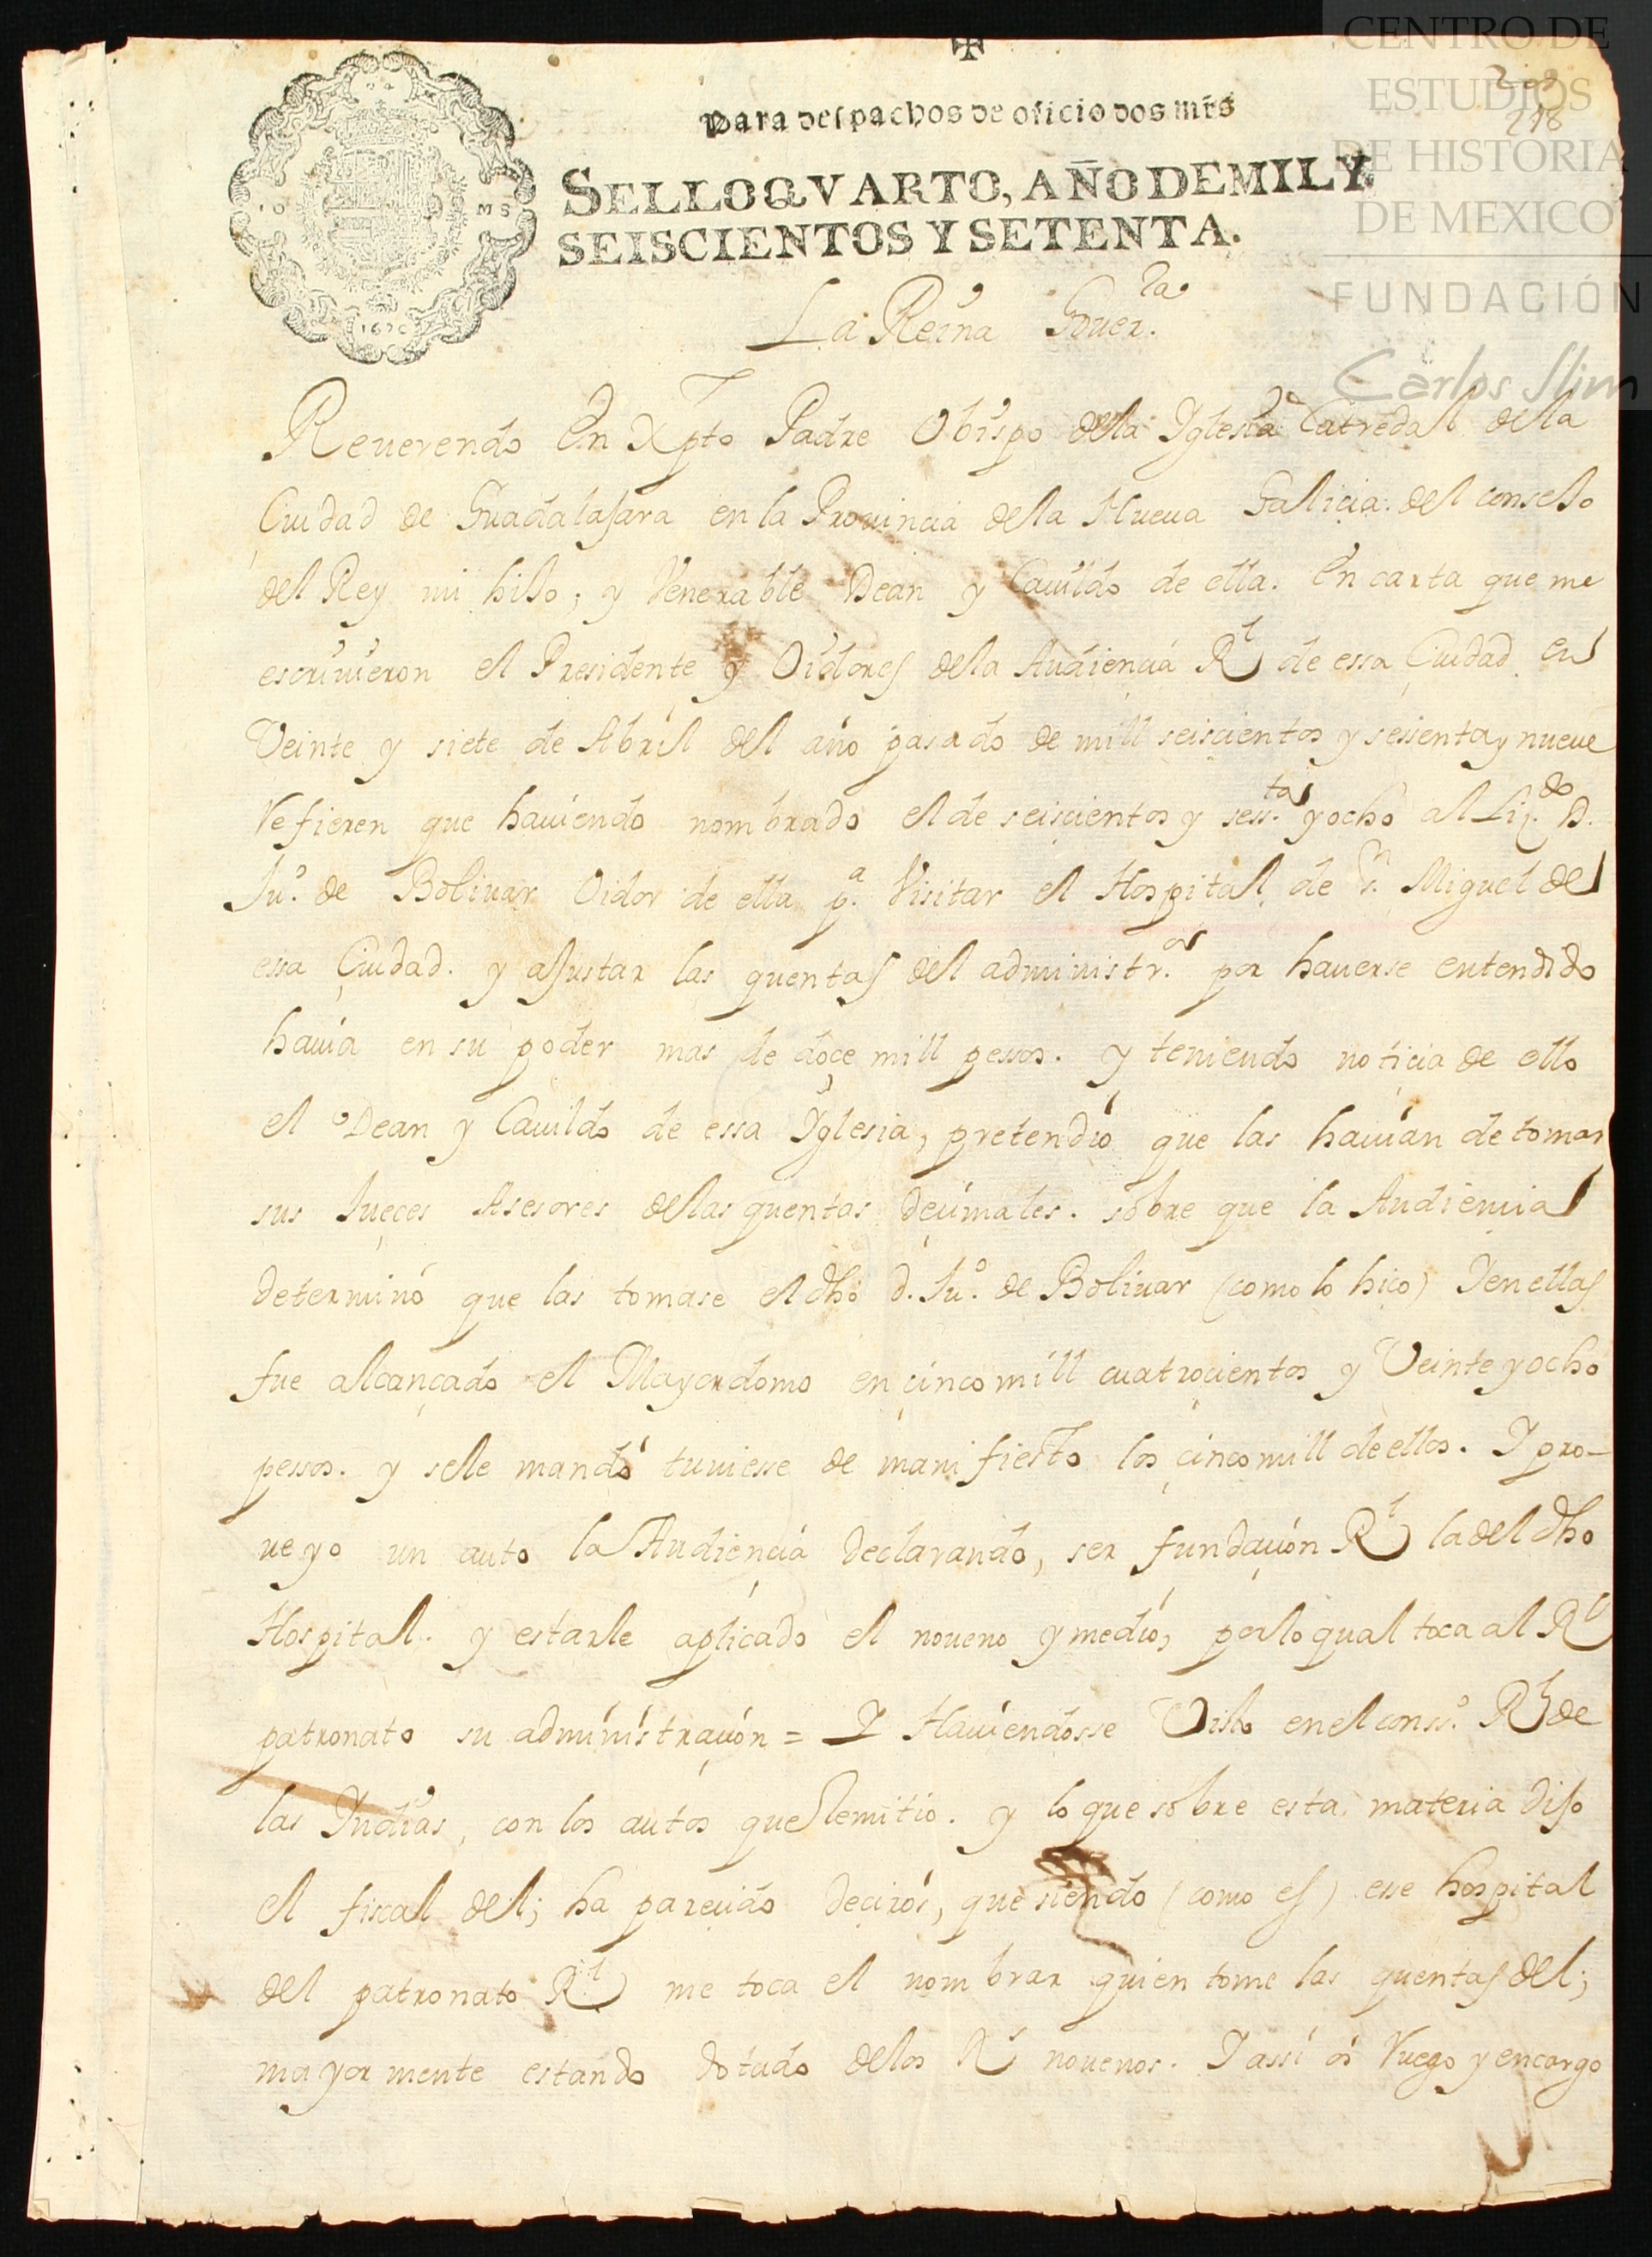 ✠
Para despachos de oficio dos mrs
SELLO QVARTO, AÑO DE MIL Y
SEISCIENTOS Y SETENTA.
1670
CENTRO DE
ESTUDIOS
DE HISTORIA
DE MEXICO
FUNDACIÓN
Carlos Slim
218
La Reina Gouer.ra
Reuerendo En Xpto Padre Obispo dela Yglesia Catredal dela
Ciudad de Guadalajara en la Prouincia dela Nueua Galicia. del consejo
del Rey mi hijo; y Venerable Dean y Cauildo de ella. En carta que me
escriuieron el Presidente y Oidores dela Audiencia Rl de essa Ciudad en
Veinte y siete de Abril del año pasado de mill seiscientos y sessenta y nueue
Refieren que hauiendo nombrado el de seiscientos y sess.ta y ocho al Liç.do D.
Ju.o de Boliuar Oidor de ella p.a Visitar el Hospital de S.n Miguel de
essa Ciudad. y ajustar las quentas del administr.or por hauerse entendido
hauia en su poder mas de doçe mill pessos. y teniendo noticia de ello
el Dean y Cauildo de essa Yglesia, pretendió que las hauian de tomar
sus Jueçes Asesores delas quentas deçimales. sobre que la Audiencia
determinó que las tomase el dho D. Ju.o de Boliuar (como lo hiço) Y en ellas
fue alcançado el Mayordomo en çinco mill cuatrocientos y Veinte y ocho
pessos. y sele mandó tuuiesse de manifiesto los çinco mill de ellos. Y pro-
ueyo un auto la Audiencia declarando, ser fundaçión Rl la del dho
Hospital. y estarle aplicado el noueno y medio, por lo qual toca al Rl
patronato su administraçión = Y Hauiendosse Visto en el cons.o Rl de
las Indias, con los autos que Remitio. y lo que sobre esta materia dijo
el fiscal del; ha pareçido deçiros, que siendo (como es) esse hospital
del patronato Rl me toca el nombrar quien tome las quentas del;
mayormente estando dotado delos Rs nouenos. Y assi os Ruego y encargo